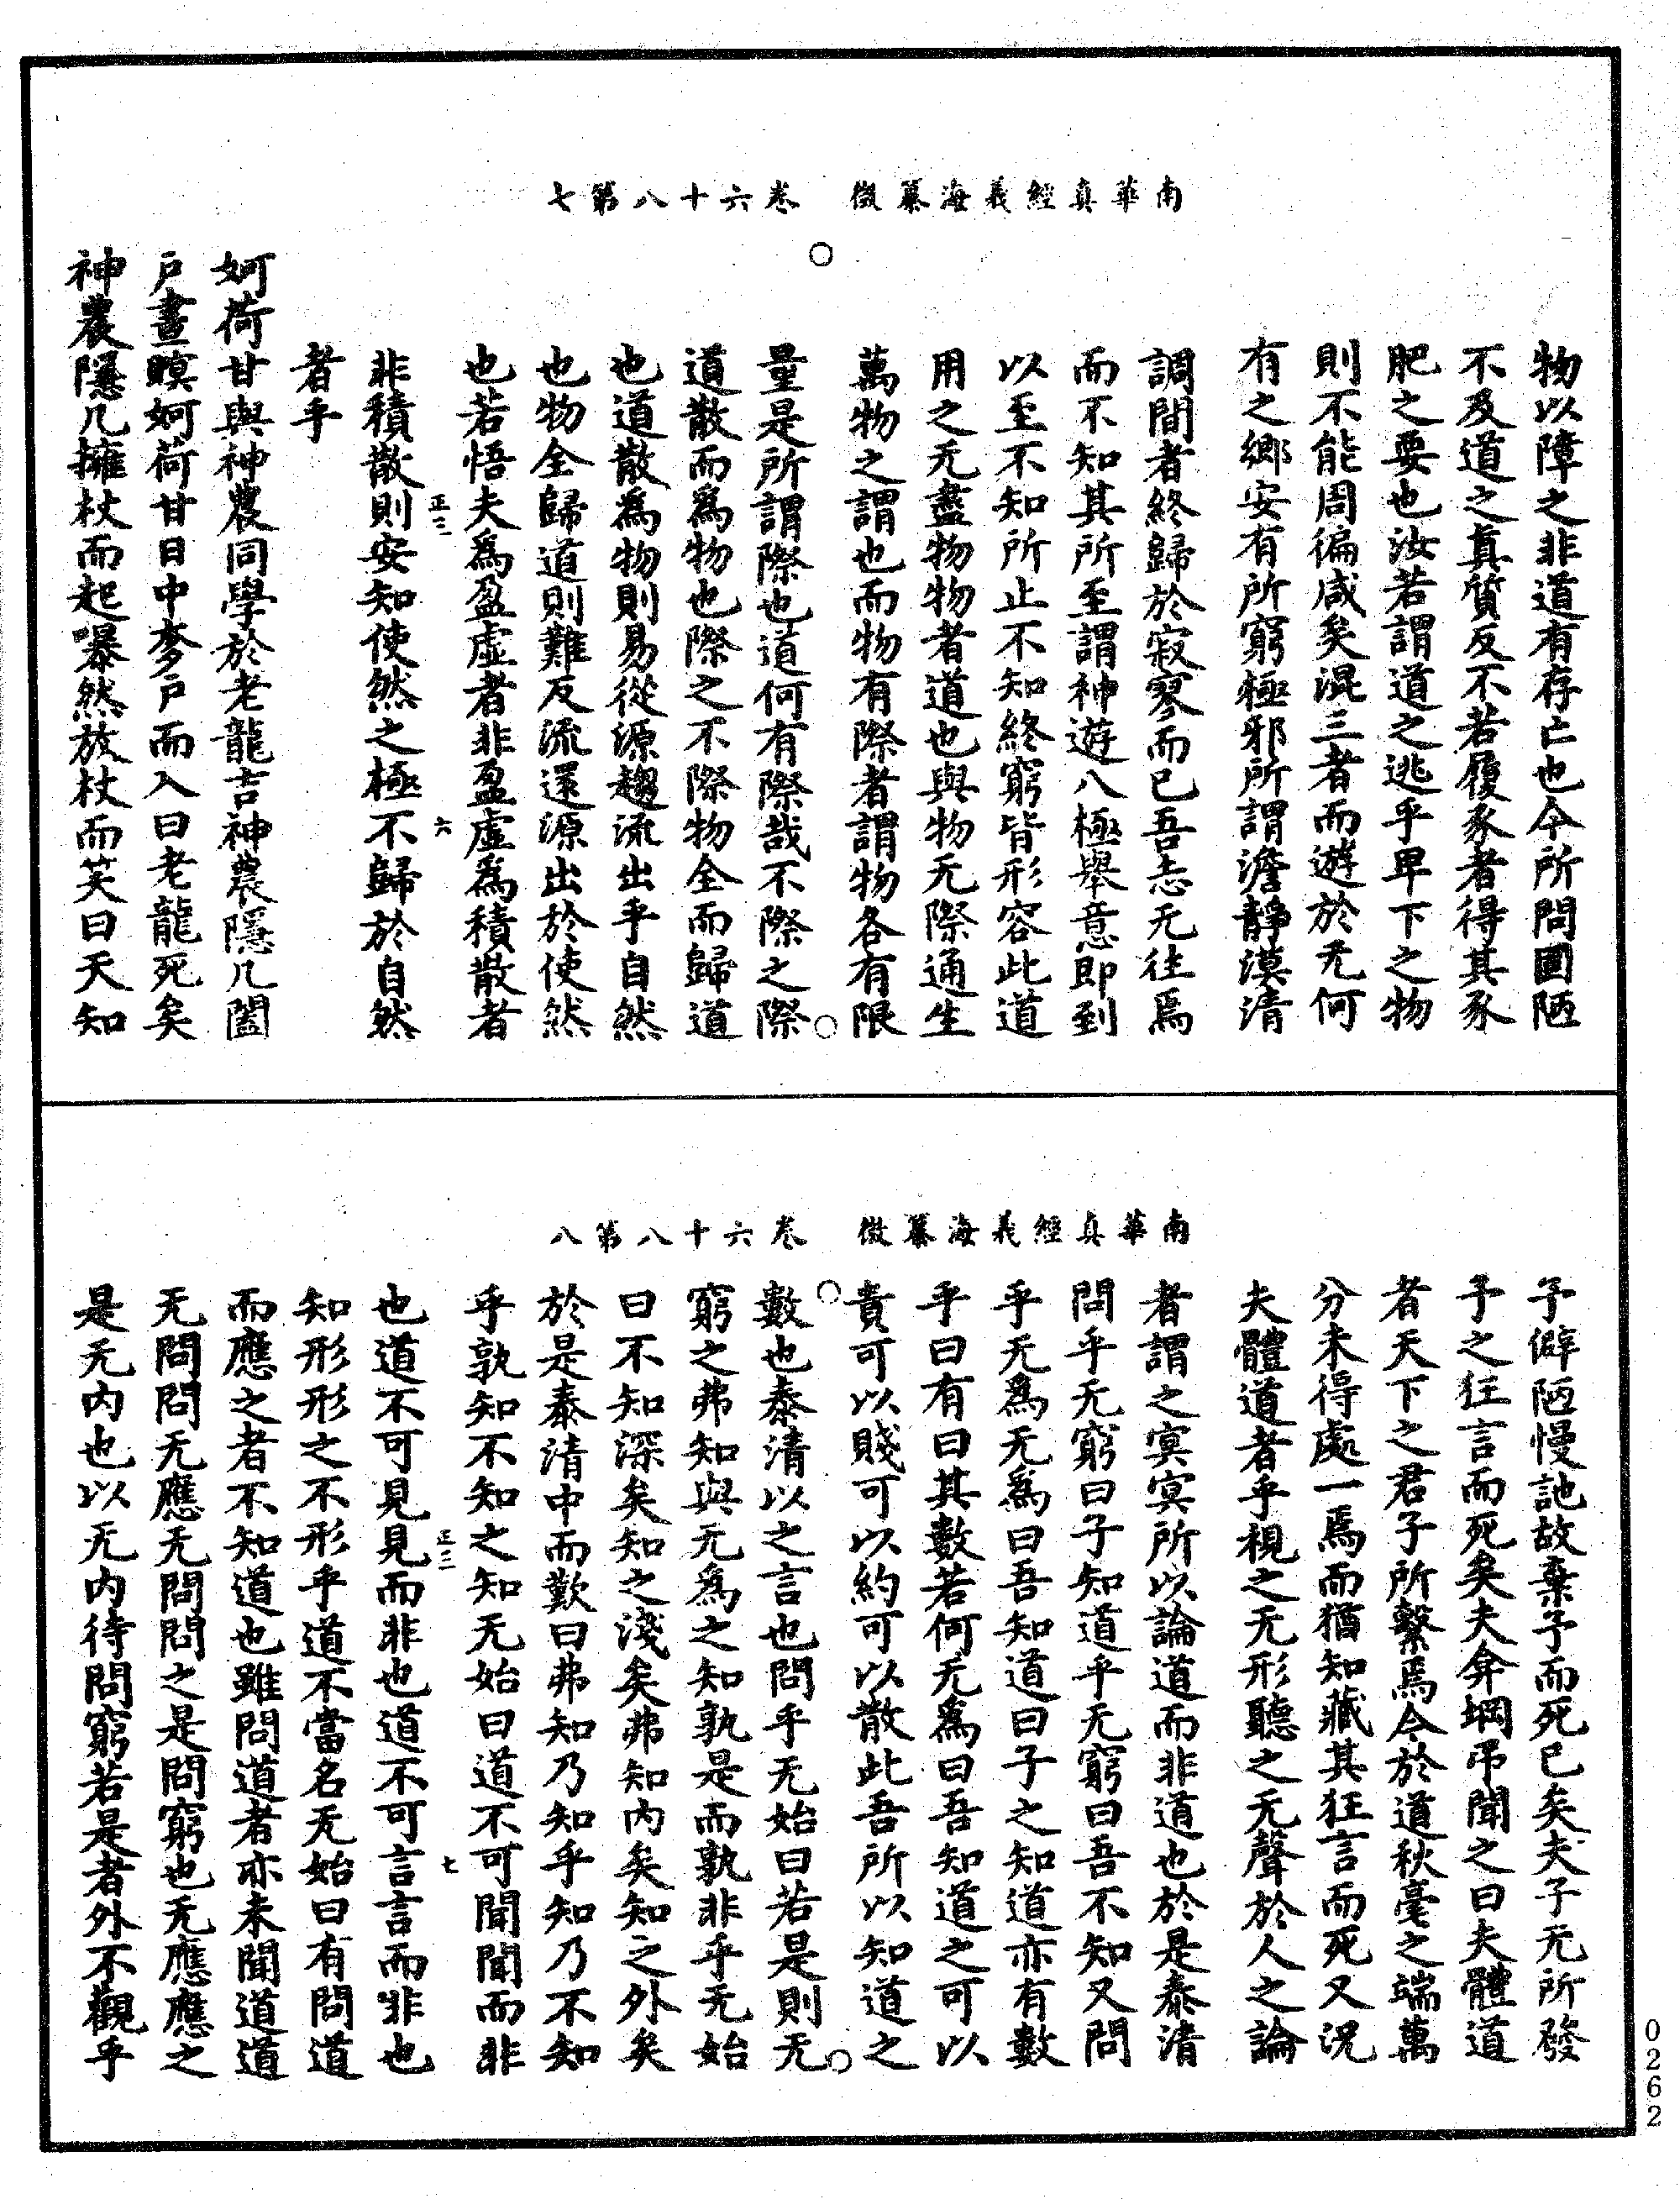 南華真經義海纂微　卷六十八第七
物以障之非道有存亡也今所問固陋
不及道之真質反不若履豕者得其豕
肥之要也汝若謂道之逃乎卑下之物
則不能周徧咸矣混三者而遊於无何
有之鄉安有所窮極邪所謂澹靜漠清
調間者終歸於寂寥而已吾志无往焉
而不知其所至謂神遊八極舉意即到
以至不知所止不知終窮皆形容此道
用之无盡物物者道也與物无際通生
萬物之謂也而物有際者謂物各有限
量是所謂際也道何有際哉不際之際
道散而爲物也際之不際物全而歸道
也道散爲物則易從源趨流出乎自然
也物全歸道則難反流還源出於使然
也若悟夫爲盈虛者非盈虛爲積散者
正三　六
非積散則安知使然之極不歸於自然
者乎
妸荷甘與神農同學於老龍吉神農隱几闔
戶晝瞑妸荷甘日中奓戶而入曰老龍死矣
神農隱几擁杖而起嚗然放杖而笑曰天知
南華真經義海纂微　卷六十八第八
予僻陋慢訑故棄予而死已矣夫子无所發
予之狂言而死矣夫弇堈弔聞之曰夫體道
者天下之君子所繫焉今於道秋毫之端萬
分未得處一焉而猶知藏其狂言而死又況
夫體道者乎視之无形聽之无聲於人之論
者謂之冥冥所以論道而非道也於是泰清
問乎无窮曰子知道乎无窮曰吾不知又問
乎无爲无爲曰吾知道曰子之知道亦有數
乎曰有曰其數若何无爲曰吾知道之可以
貴可以賤可以約可以散此吾所以知道之
數也泰清以之言也問乎无始曰若是則无
窮之弗知與无爲之知孰是而孰非乎无始
曰不知深矣知之淺矣弗知內矣知之外矣
於是泰清中而歎曰弗知乃知乎知乃不知
乎孰知不知之知无始曰道不可聞聞而非
正三　七
也道不可見見而非也道不可言言而非也
知形形之不形乎道不當名无始曰有問道
而應之者不知道也雖問道者亦未聞道道
无問問无應无問問之是問窮也无應應之
是无內也以无內待問窮若是者外不觀乎
0262